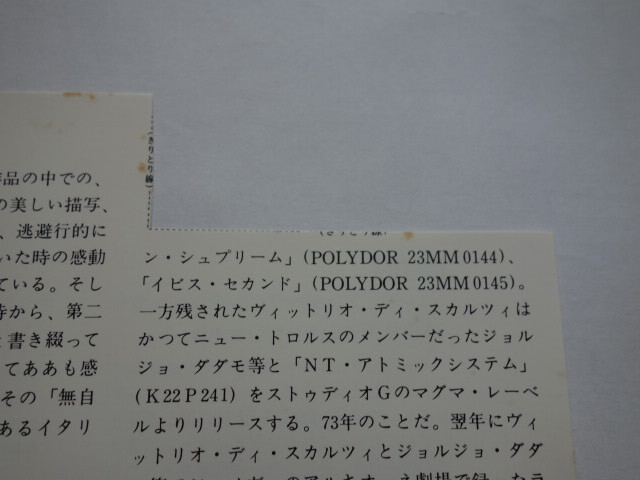 (きりとり線)
品の中での、
の美しい描写、
、逃避行的に
いた時の感動
ている。そし
時から、第二
と書き綴って
てああも感
その「無自
あるイタリ
(きりとり線)
ン・シュプリーム」(POLYDOR 23MM0144)、
「イビス・セカンド」(POLYDOR 23MM0145)。
一方残されたヴィットリオ・ディ・スカルツィは
かつてニュー・トロルスのメンバーだったジョル
ジョ・ダダモ等と「NT・アトミックシステム」
(K22P241) をストゥディオGのマグマ・レーベ
ルよりリリースする。73年のことだ。翌年にヴィ
ットリオ・ディ・スカルツィとジョルジョ・ダダ